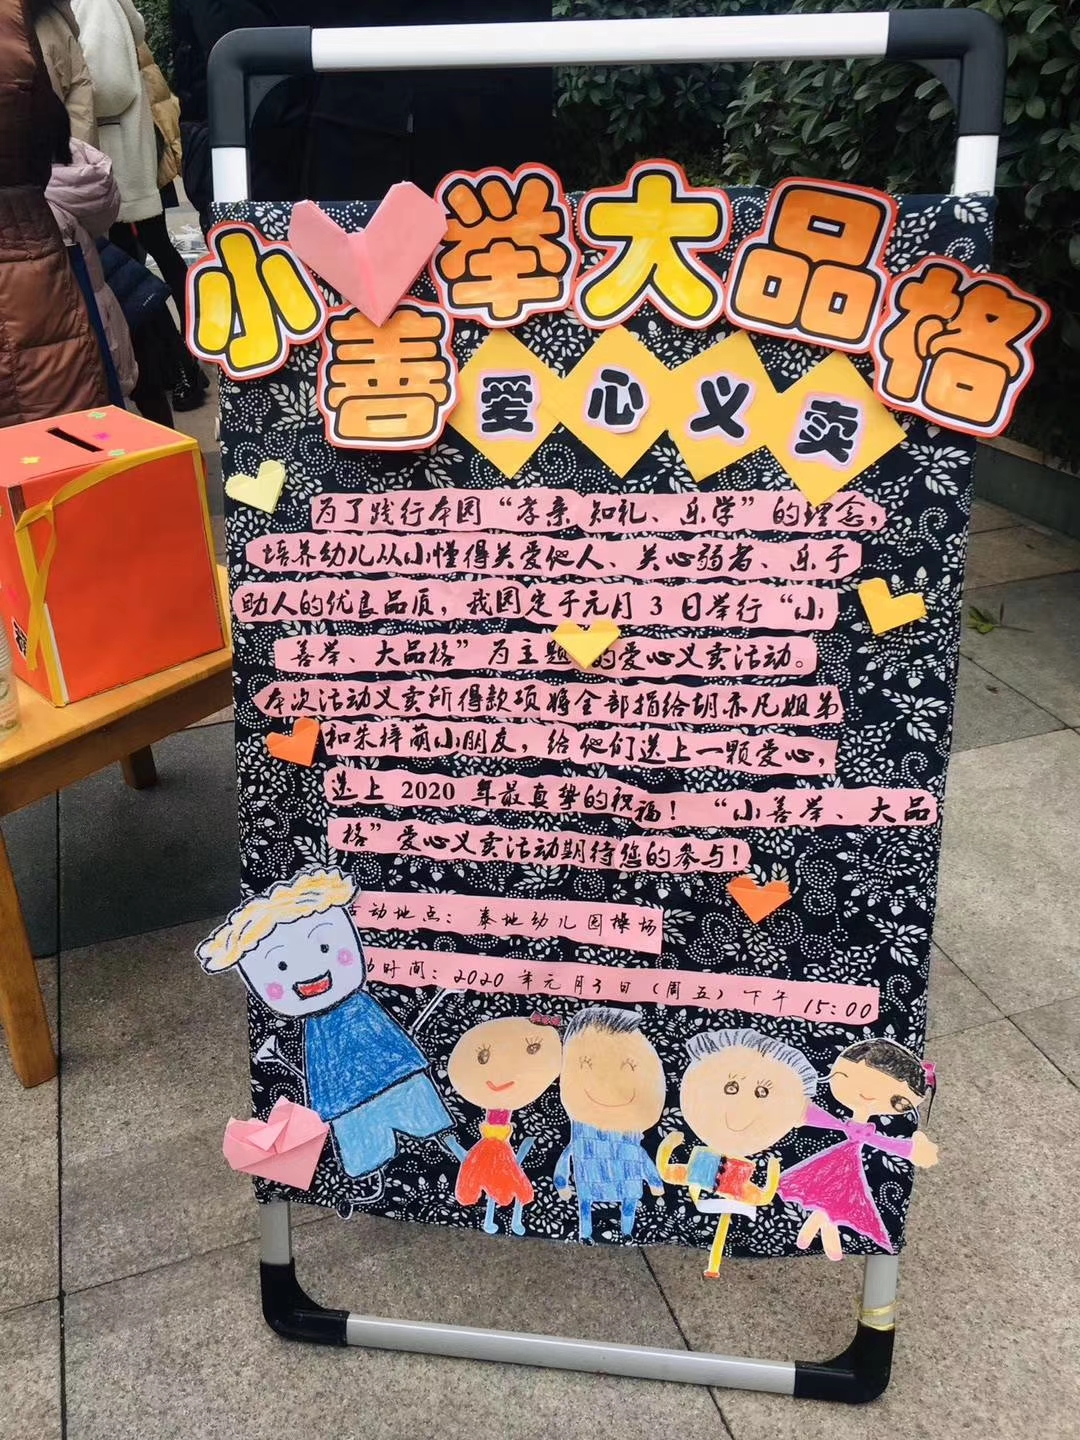 小善举大品格
爱心义卖
为了践行本园“孝亲 知礼、乐学”的理念，
培养幼儿从小懂得关爱他人、关心弱者、乐于
助人的优良品质，我园定于元月 3 日举行“小
善举、大品格”为主题的爱心义卖活动。
本次活动义卖所得款项将全部捐给胡亦凡姐弟
和朱梓萌小朋友，给他们送上一颗爱心，
送上 2020 年最真挚的祝福！“小善举、大品
格”爱心义卖活动期待您的参与！
活动地点：泰地幼儿园操场
动时间：2020 年元月3日（周五）下午 15:00